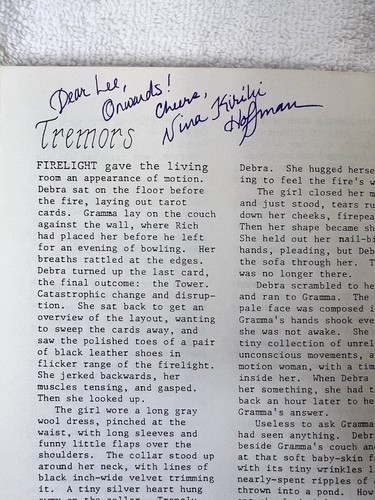 Dear Lee,
Onwards!
Cheers,
Nina Kiriki
Hoffman
Tremors
FIRELIGHT gave the living
room an appearance of motion.
Debra sat on the floor before
the fire, laying out tarot
cards. Gramma lay on the couch
against the wall, where Rich
had placed her before he left
for an evening of bowling. Her
breaths rattled at the edges.
Debra turned up the last card,
the final outcome: the Tower.
Catastrophic change and disrup-
tion. She sat back to get an
overview of the layout, wanting
to sweep the cards away, and
saw the polished toes of a pair
of black leather shoes in
flicker range of the firelight.
She jerked backwards, her
muscles tensing, and gasped.
Then she looked up.
The girl wore a long gray
wool dress, pinched at the
waist, with long sleeves and
funny little flaps over the
shoulders. The collar stood up
around her neck, with lines of
black inch-wide velvet trimming
it. A tiny silver heart hung
Debra. She hugged herse
ing to feel the fire's w
The girl closed her m
and just stood, tears ru
down her cheeks, firepea
Then her shape became sh
She held out her nail-bi
hands, pleading, but Deb
the sofa through her. T
was no longer there.
Debra scrambled to he
and ran to Gramma. The
pale face was composed i
Gramma's hands shook eve
she was not awake. She
tiny collection of unrel
unconscious movements, a
motion woman, with a tim
inside her. When Debra
her something, she had t
back an hour later to he
Gramma's answer.
Useless to ask Gramma
had seen anything. Debr
beside Gramma's couch an
at that soft baby-skin f
with its tiny wrinkles li
nearly-spent ripples of a
thrown into a pond. How